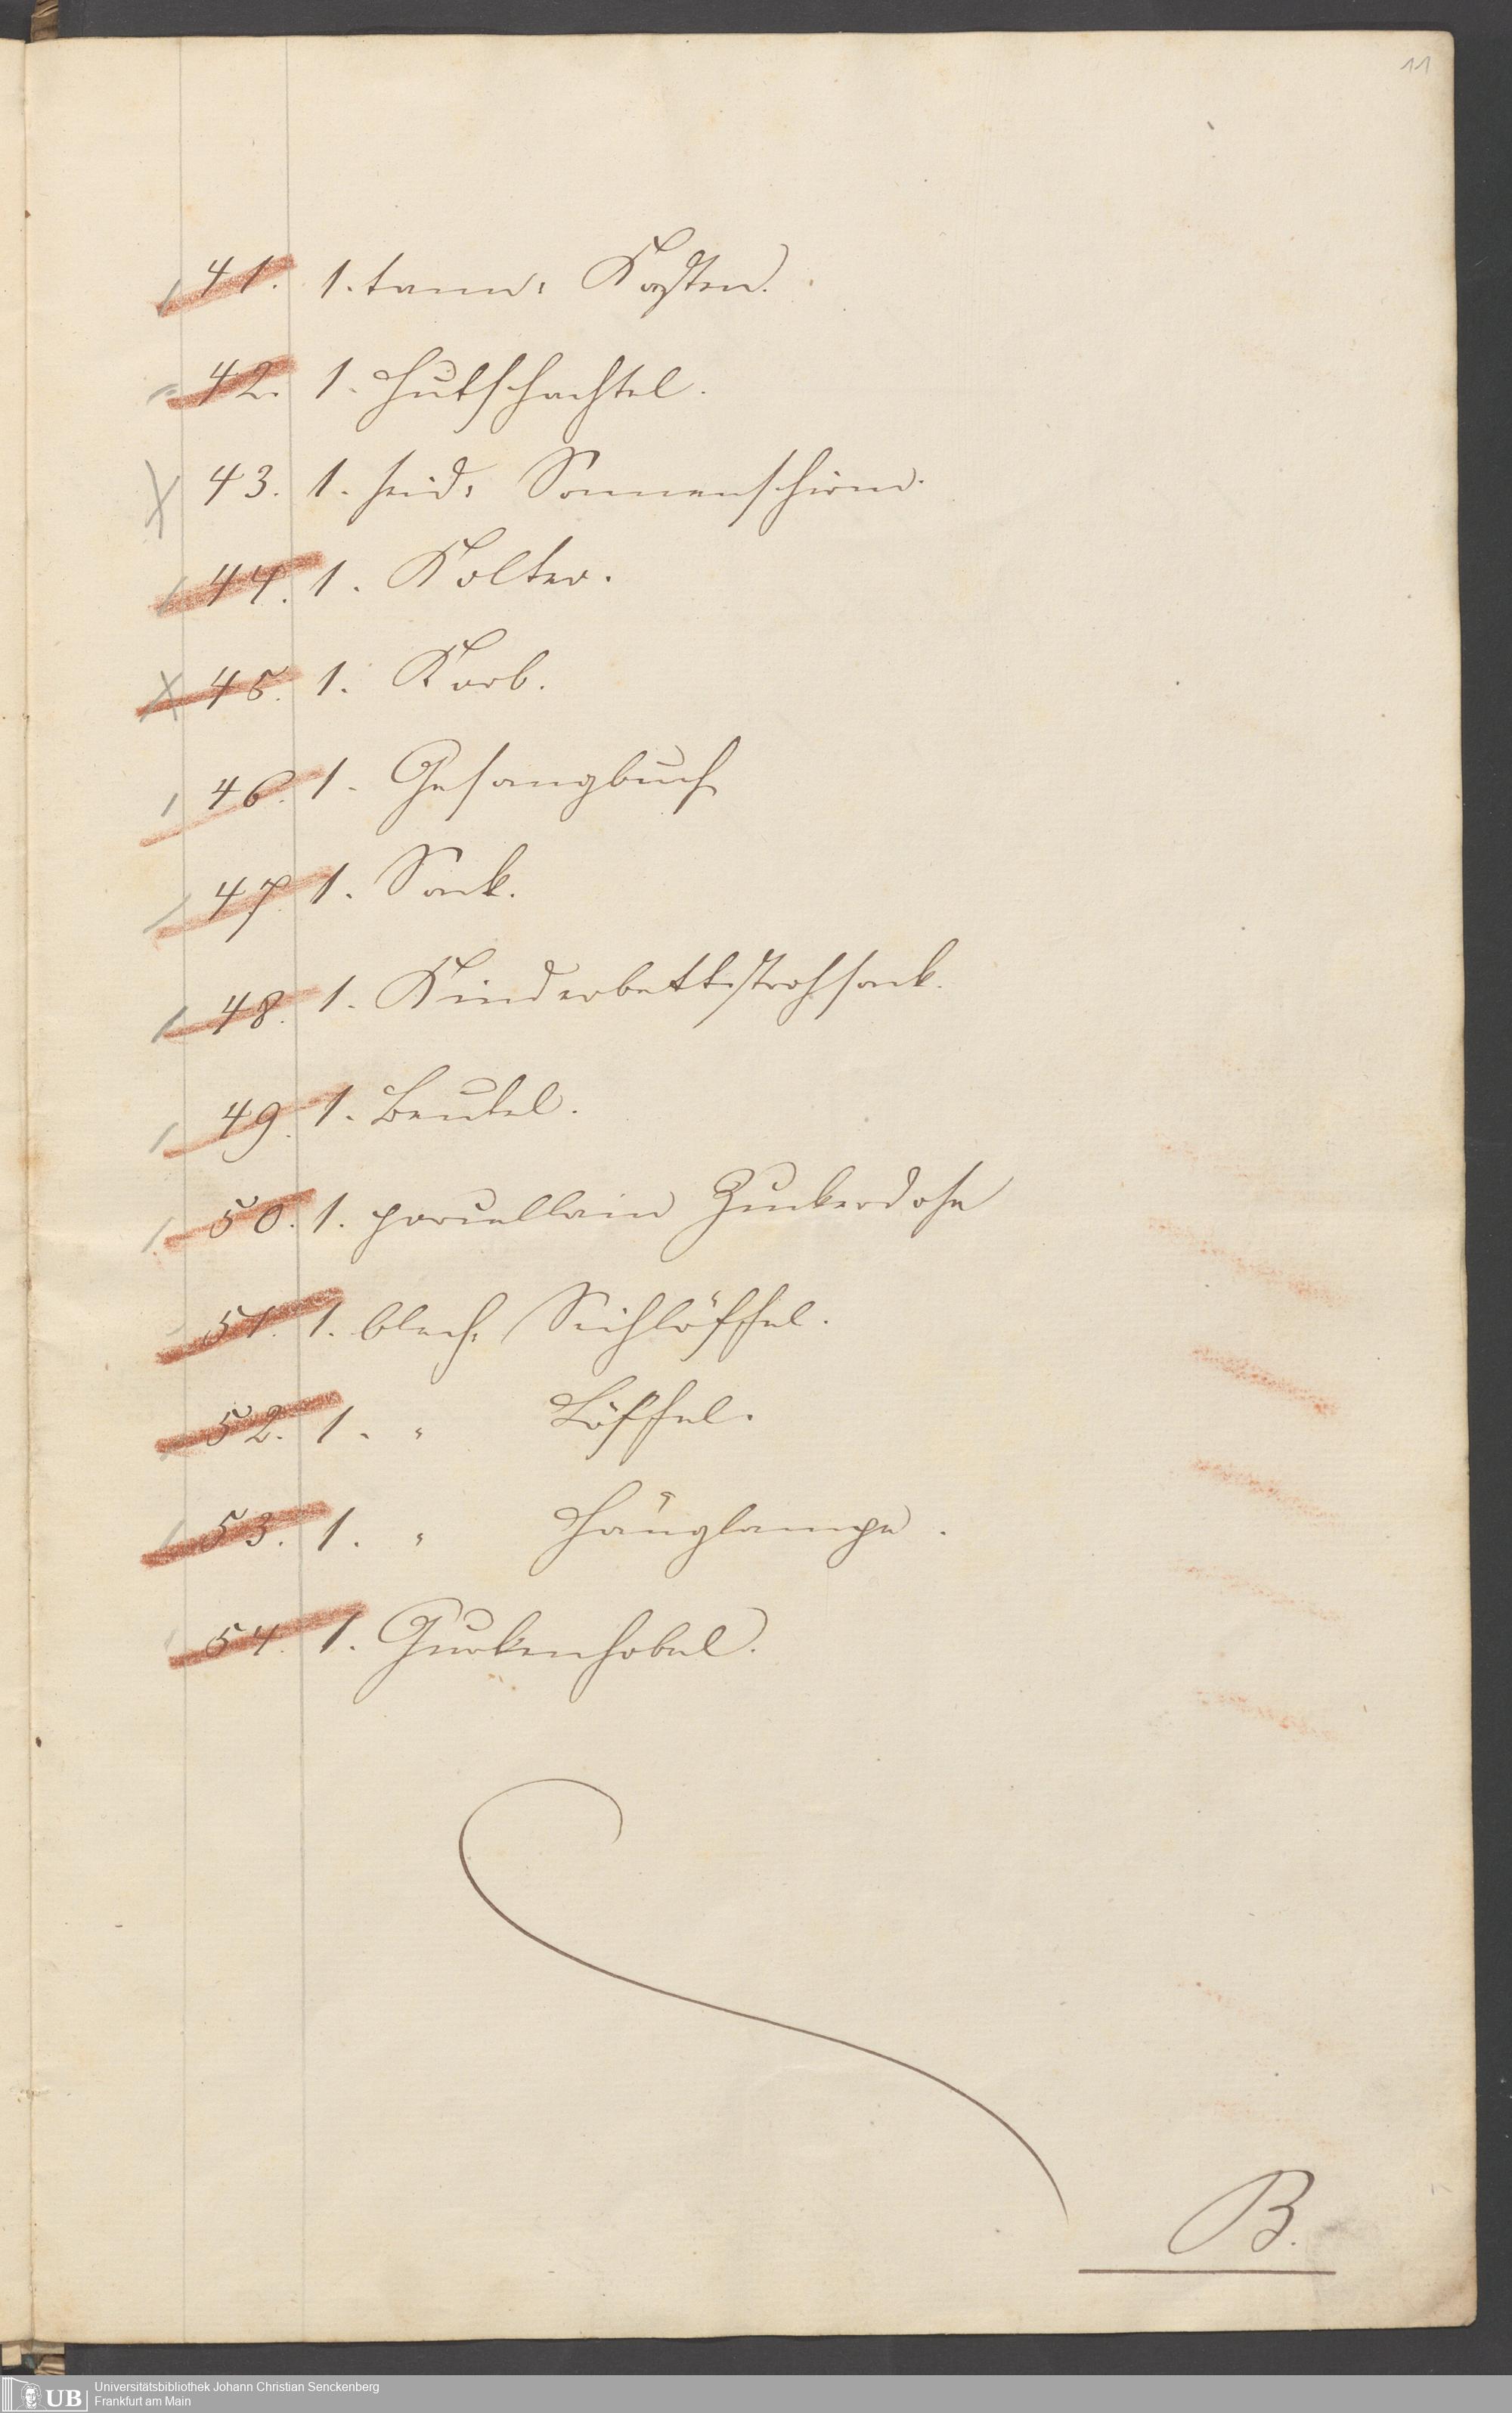 11
41. 1. tann: Kasten.
42. 1. Hutschachtel.
43. 1. seid: Sonnenschirm.
44. 1. Kolter.
45. 1. Korb.
46. 1. Gesangbuch
47. 1. Sack.
48. 1. Kinderbettstrohsack.
49. 1. Beutel.
50. 1. porcellain Zuckerdose
51. 1. blech: Seihlöffel.
52. 1. " Löffel.
53. 1. " Hänglampe.
54. 1. Gurkenhobel.
B.
UB
Universitätsbibliothek Johann Christian Senckenberg
Frankfurt am Main